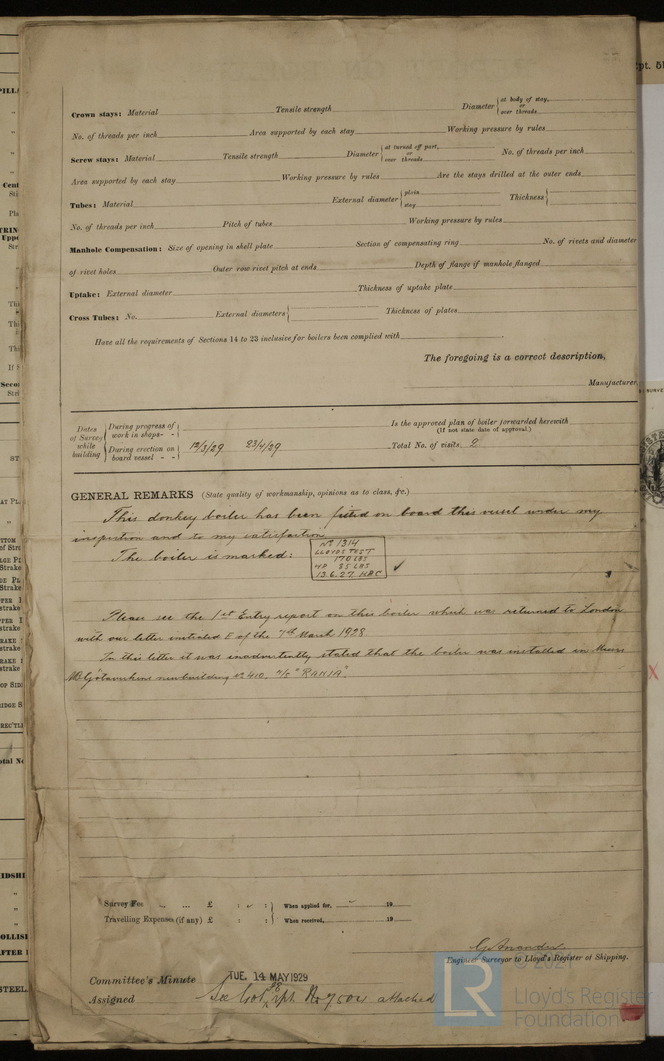 Crown stays: Material Tensile strength Diameter at body of stay, or over threads
No. of threads per inch Area supported by each stay Working pressure by rules
Screw stays: Material Tensile strength Diameter at turned off part, or over threads No. of threads per inch
Area supported by each stay Working pressure by rules Are the stays drilled at the outer ends
Tubes: Material External diameter plain stay Thickness
No. of threads per inch Pitch of tubes Working pressure by rules
Manhole Compensation: Size of opening in shell plate Section of compensating ring No. of rivets and diameter
of rivet holes Outer row rivet pitch at ends Depth of flange if manhole flanged
Uptake: External diameter Thickness of uptake plate
Cross Tubes: No. External diameters Thickness of plates
Have all the requirements of Sections 14 to 23 inclusive for boilers been complied with
The foregoing is a correct description,
Manufacturer.
Dates of Survey while building
During progress of work in shops - -
Is the approved plan of boiler forwarded herewith
(If not state date of approval.)
During erection on board vessel - - 12/3/29 23/4/29 Total No. of visits. 2
GENERAL REMARKS (State quality of workmanship, opinions as to class, &c.)
This donkey boiler has been fitted on board this vessel under my
inspection and to my satisfaction
The boiler is marked:
No 1314
LLOYDS TEST
170 LBS
WP 85 LBS
13.6.27 HAC
Please see the 1st Entry report on this boiler which was returned to London
with our letter initialed E of the 7th March 1928.
In this letter it was inadvertently stated that the boiler was installed in Messrs
Götaverkens newbuilding no 410, M/S "RANJA".
Survey Fee ... ... £ : : When applied for, 19
Travelling Expenses (if any) £ : : When received, 19
Engineer Surveyor to Lloyd's Register of Shipping.
Committee's Minute TUE. 14 MAY 1929
Assigned See Got. rpt. attached
LR
© 202
Lloyd's Register
Foundation